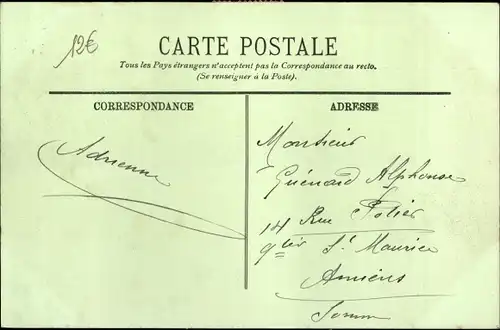 12€
CARTE POSTALE
Tous les Pays étrangers n'acceptent pas la Correspondance au recto.
(Se renseigner à la Poste).
CORRESPONDANCE
ADRESSE
Adrienne
Monsieur
Guénard Alphonse
14 Rue Potier
qtier St Maurice
Amiens
Somme